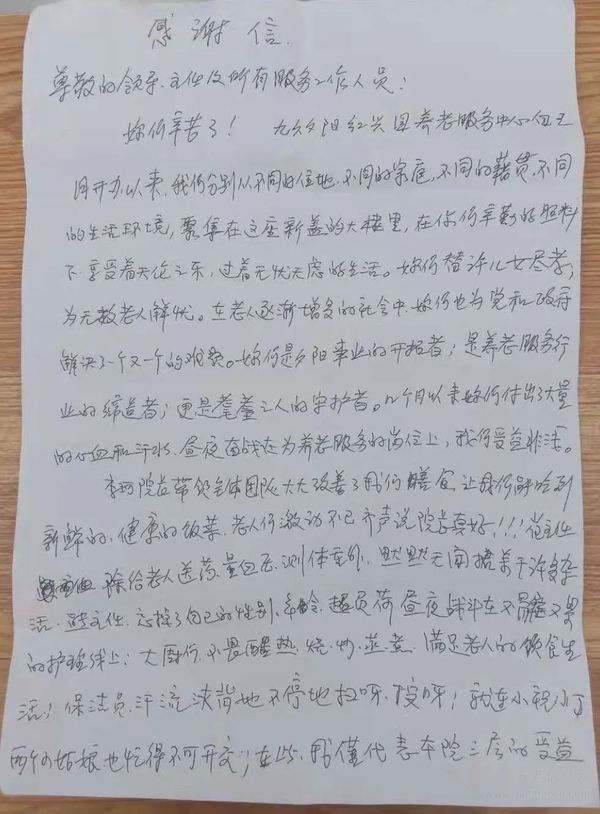 感谢信
尊敬的领导、主任及所有服务工作人员:
妳们辛苦了! 九久夕阳红兴国养老服务中心
同开办以来,我们分别从不同的住地、不同的家庭,不同的籍贯、不同
的生活环境,聚集在这座新盖的大楼里,在你们辛勤的照料
下享受着天伦之乐,过着无忧无虑的生活。妳们替许儿女尽孝;
为无数老人解忧。在老人逐渐增多的社会中,妳们也为党和政府
解决了一个又一个的难题。妳们是夕阳事业的开拓者;是养老服务行
业的缔造者;更是耄耋之人的守护者。几个月以来妳们付出了大量
的心血和汗水,昼夜奋战在为养老服务的岗位上,我们受益非浅。
李 院长带领全体团队大大改善了我们膳食,让我们能吃到
新鲜的、健康的饭菜,老人们激动不已齐声说院长真好!!! 主任
除给老人送药、量血压、测体温外,默默无闻 干许多杂
活。 主任,忘掉了自己的性别、年龄,超负荷昼夜战斗在不 又累
的护理线上;大厨们,不畏 热,烧、炒、蒸、煮,满足老人的饮食生
活;保洁员,汗流浃背地不停地扫呀、 呀;就连小祝小丁
两个姑娘也忙得不可开交;在此,我仅代表本院三层的受益